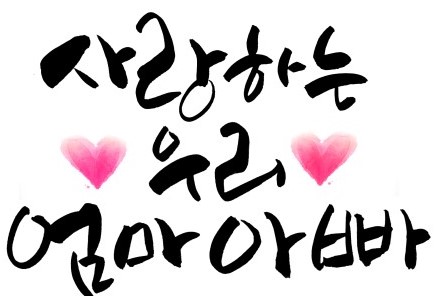 사랑하는
우리
엄마아빠